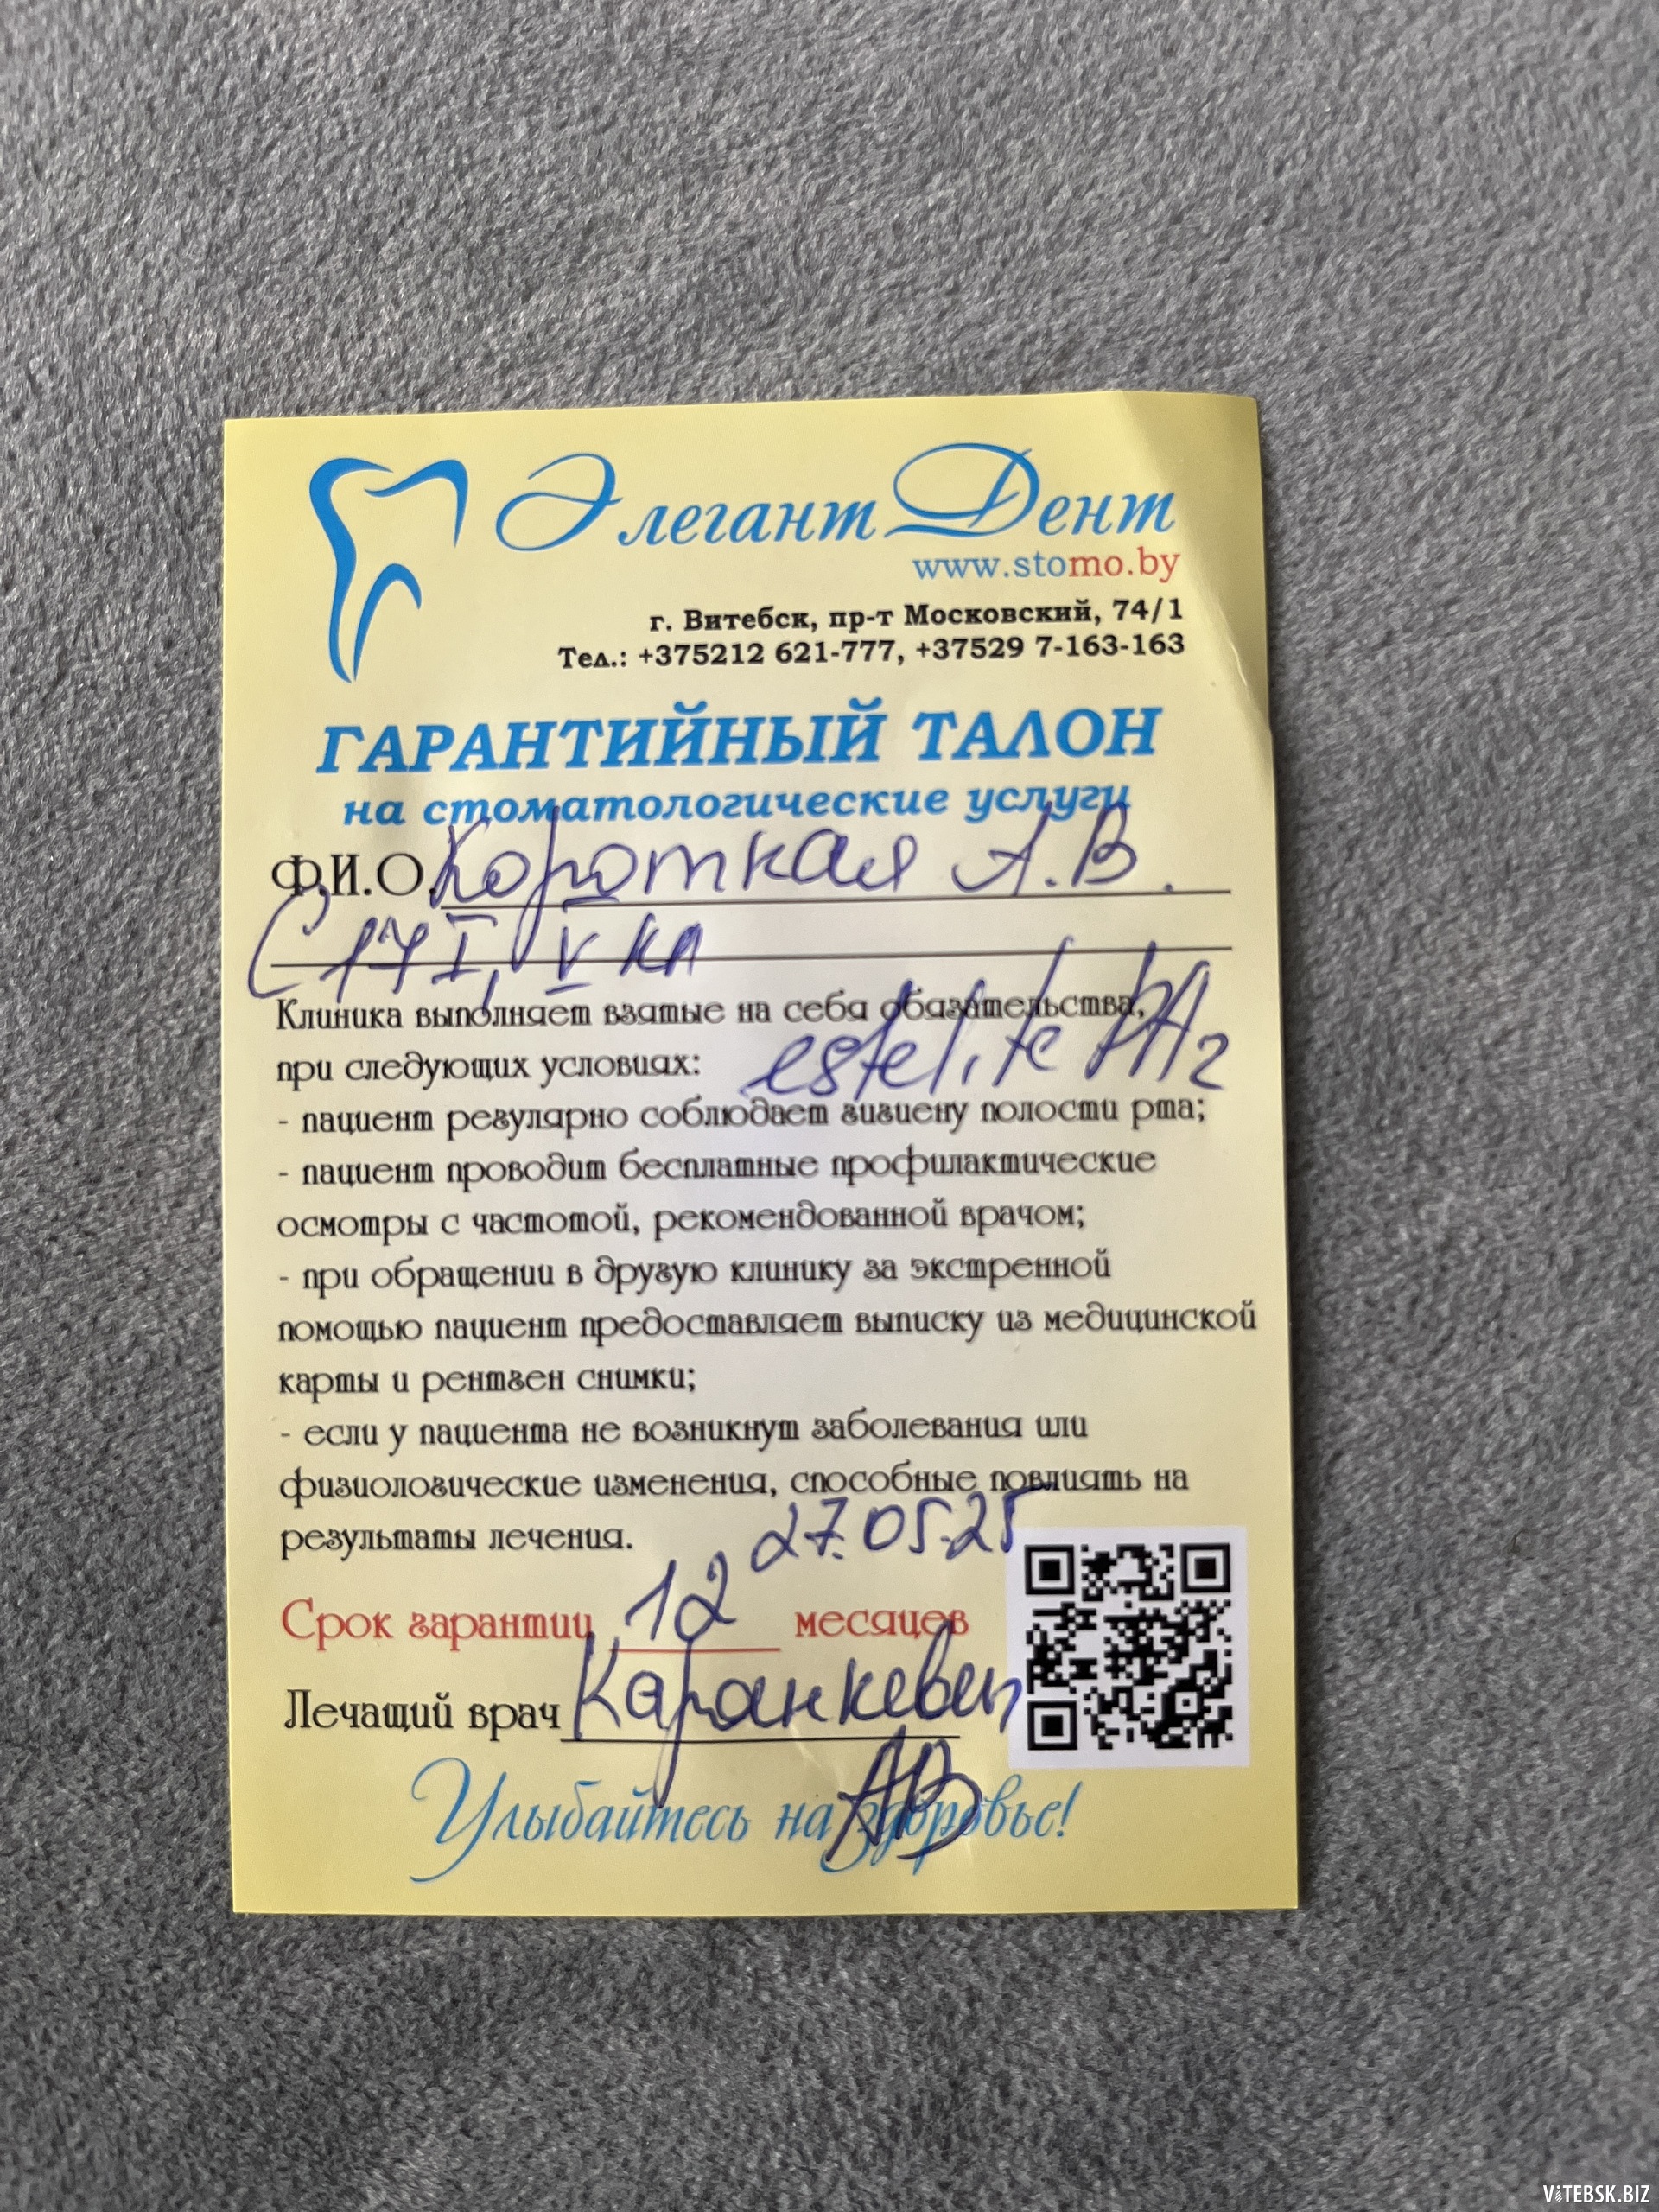 Элегант Дент
www.stomo.by
г. Витебск, пр-т Московский, 74/1
Тел.: +375212 621-777, +37529 7-163-163
ГАРАНТИЙНЫЙ ТАЛОН
на стоматологические услуги
Ф.И.О. Короткая А.В.
С 17 I, V кл
Клиника выполняет взятые на себя обязательства,
при следующих условиях: estelite A2
- пациент регулярно соблюдает гигиену полости рта;
- пациент проводит бесплатные профилактические
осмотры с частотой, рекомендованной врачом;
- при обращении в другую клинику за экстренной
помощью пациент предоставляет выписку из медицинской
карты и рентген снимки;
- если у пациента не возникнут заболевания или
физиологические изменения, способные повлиять на
результаты лечения. 27.05.25
Срок гарантии 12 месяцев
Лечащий врач
АВ
Улыбайтесь на здоровье!
VITEBSK.BIZ